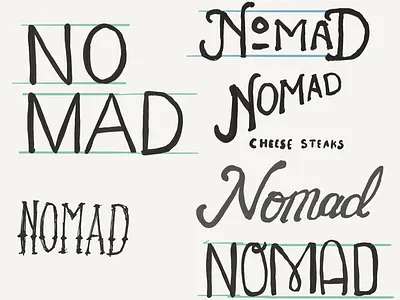 NO
MAD
NOMAD
NoMAD
NOMAD
CHEESE STEAKS
Nomad
NOMAD